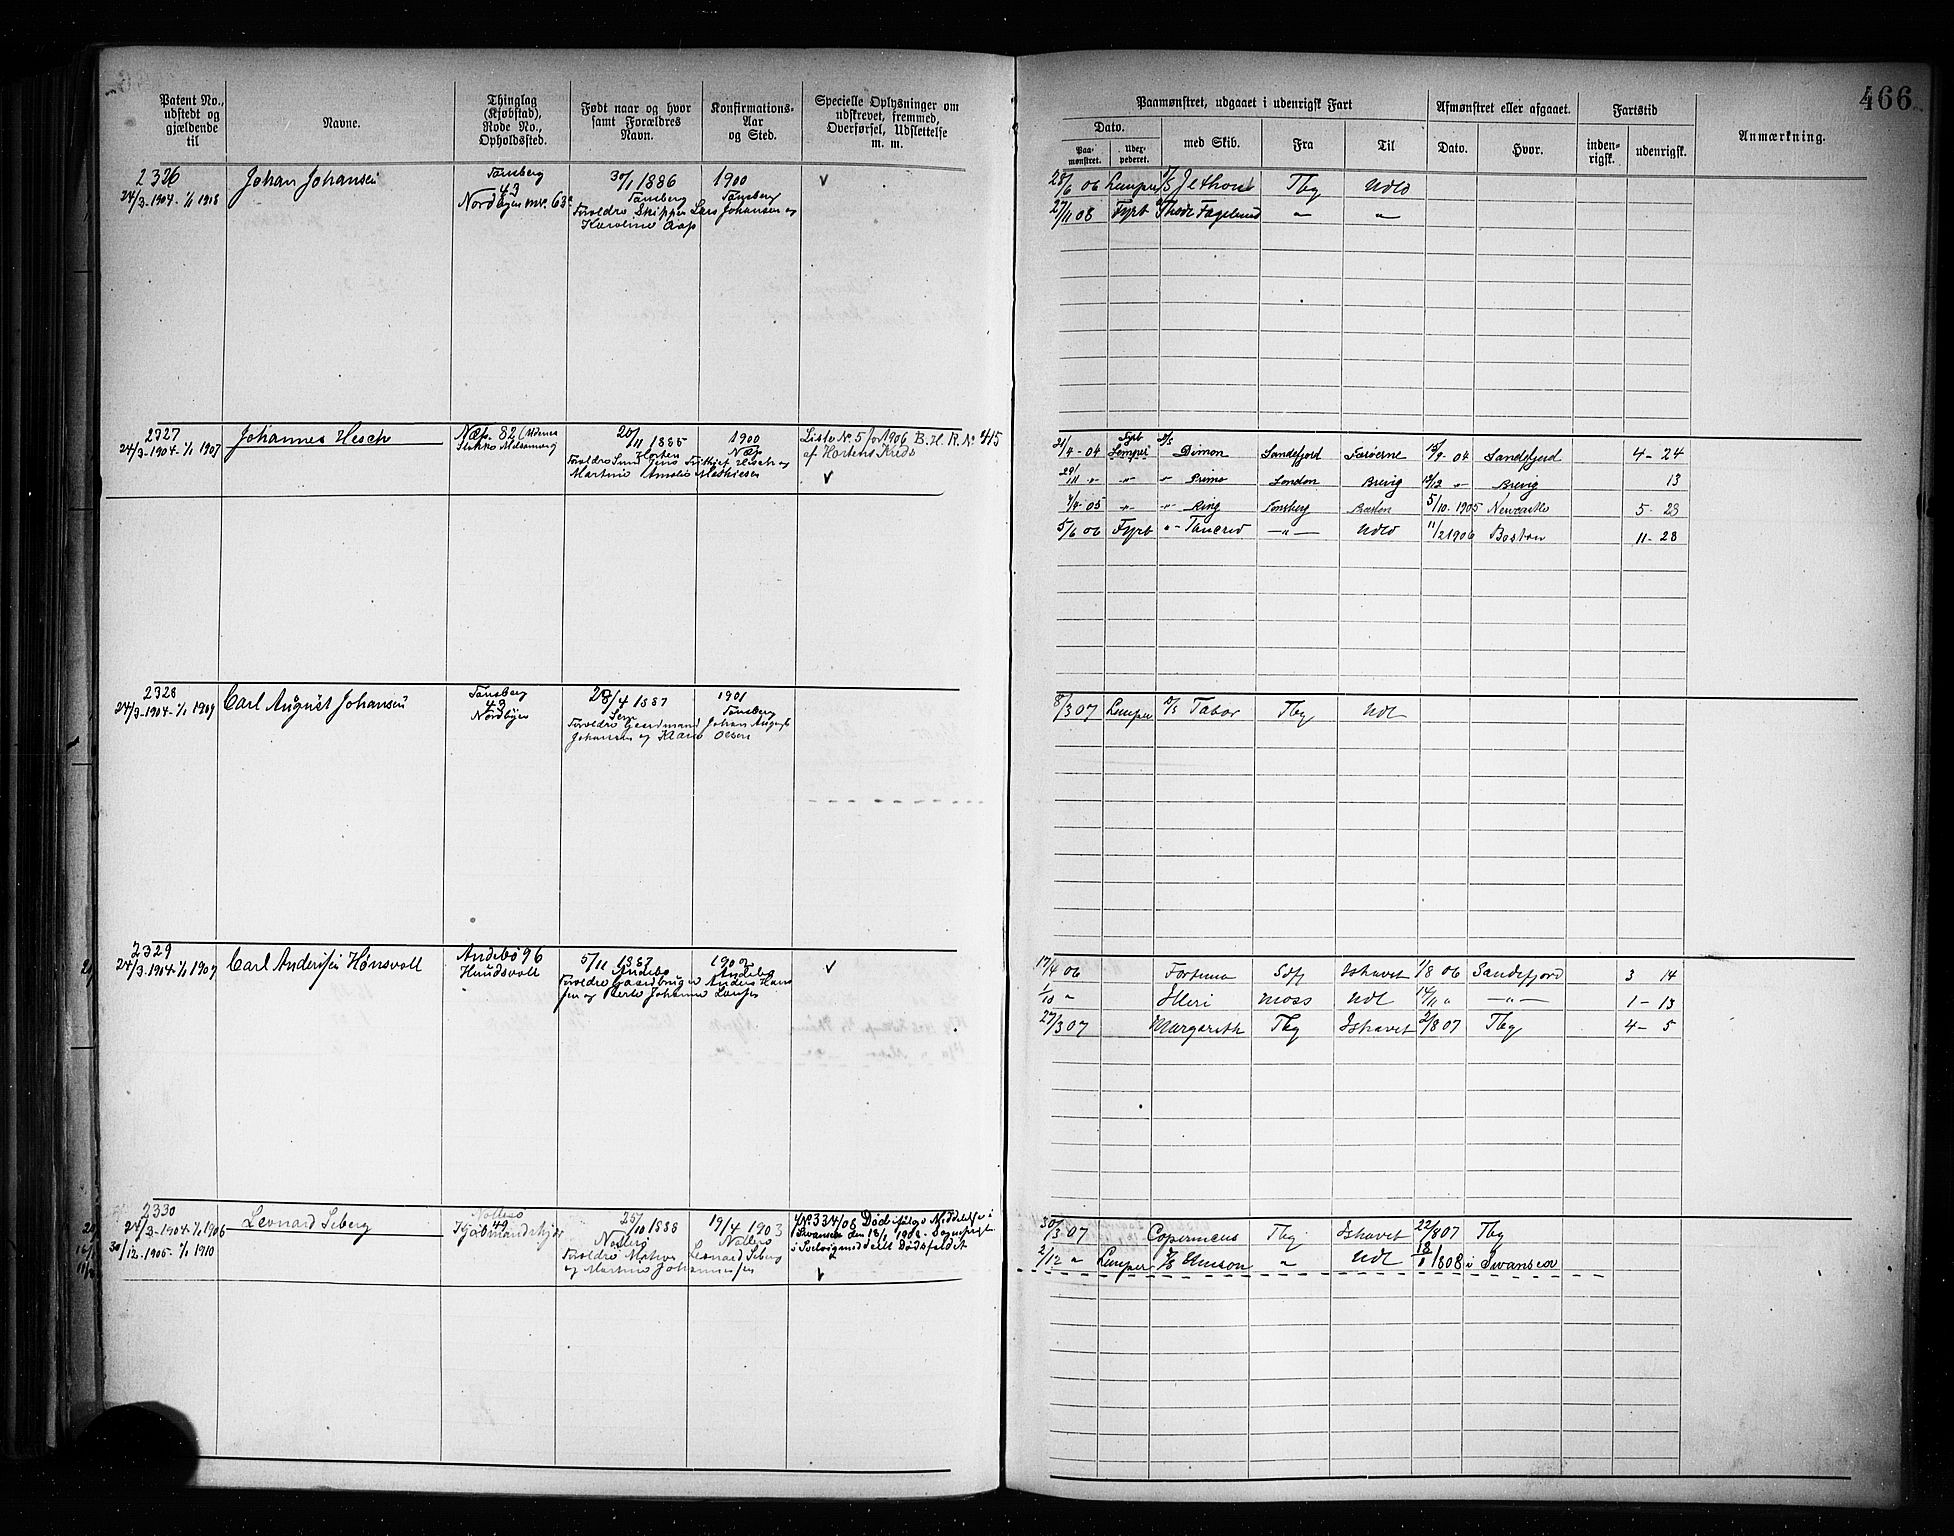 466
Patent No., udstedt og gjældende til
Navne.
Thinglag (Kjøbstad), Rode No., Opholdssted.
Født naar og hvor samt Forældres Navn.
Konfirmations-Aar og Sted.
Specielle Oplysninger om udskrevet, fremmed, Overførsel, Udslettelse m. m.
Paamønstret, udgaaet i udenrigsk Fart
Dato.
Paa-mønstret.
med Skib.
Fra
Til
Afmønstret eller afgaaet.
Dato.
Hvor.
Fartstid
inden-rigsk.
udenrigsk.
Anmærkning.
2326
24/3-1904-1/1 1908
Johan Johansen
Tønsberg
43
Nordbyen
30/1 1886
Tønsberg
Forældre Skipper Lars Johansen og
Karoline Aas
1900
Tønsberg
v
28/6 06 Tbg Udld
27/11 08 Fyrb Thode Fagelund " "
2327
24/3-1904-1/1 1907
Johannes Hesch
82
20/11 1885
Horten
1900
Liste No. 5 for 1906 B. H. R. No 415
af Hortens Kreds
v
21/4-04 Fyrb Lemper Dimon Sandefjord Færøerne 15/9-04 Sandefjord 4-24
29/11 " " Primo London Brevig 12/12 " Brevig 13
" Ring Tønsberg 5/10-1905 Newcastle 5-23
5/6 06 Fyrb " Tancred " Udld 11/2 1906 Boston 11-28
2328
24/3-1904-1/1 1909
Carl August Johansen
Tønsberg
43
Nordbyen
28/4 1887
Sem
Forældre Gaardmand Johan August
Johansen og Klara Olsen
1901
Tønsberg
8/3 07 Lemper D/S Tabor Tbg Udl
2329
24/3-1904-1/1 1909
Carl Andersen Hønsvall
Andebø 96
5/11 1887
Andebø
Forældre Gaardbruger Anders Han
sen og Berte Johanne Larsen
1902
Andebø
v
17/4 06 Fortuna Sdfj Ishavet 1/8 06 Sandefjord 3 14
1/10 " Moss Udl 14/11 " " 1-13
27/3 07 Margareth Tbg Ishavet 2/8 07 Tbg 4-5
2330
24/3-1904-1/1 1906
30/12-1905-1/1 1910
Leonard Seberg
Nøtterø
49
25/10 1888
Nøtterø
Forældre Matros Leonard Seberg
og Martine Johannesen
19/4 1903
Nøtterø
No. 334/08 Død ifølge Meddelelse i
Swansea den 18/1 1908.
v
30/3 07 Copernicus Tbg Ishavet 22/8 07 Tbg
2/12 " Lemper D/S Unison " Udl 18/1 1908 i Swansea